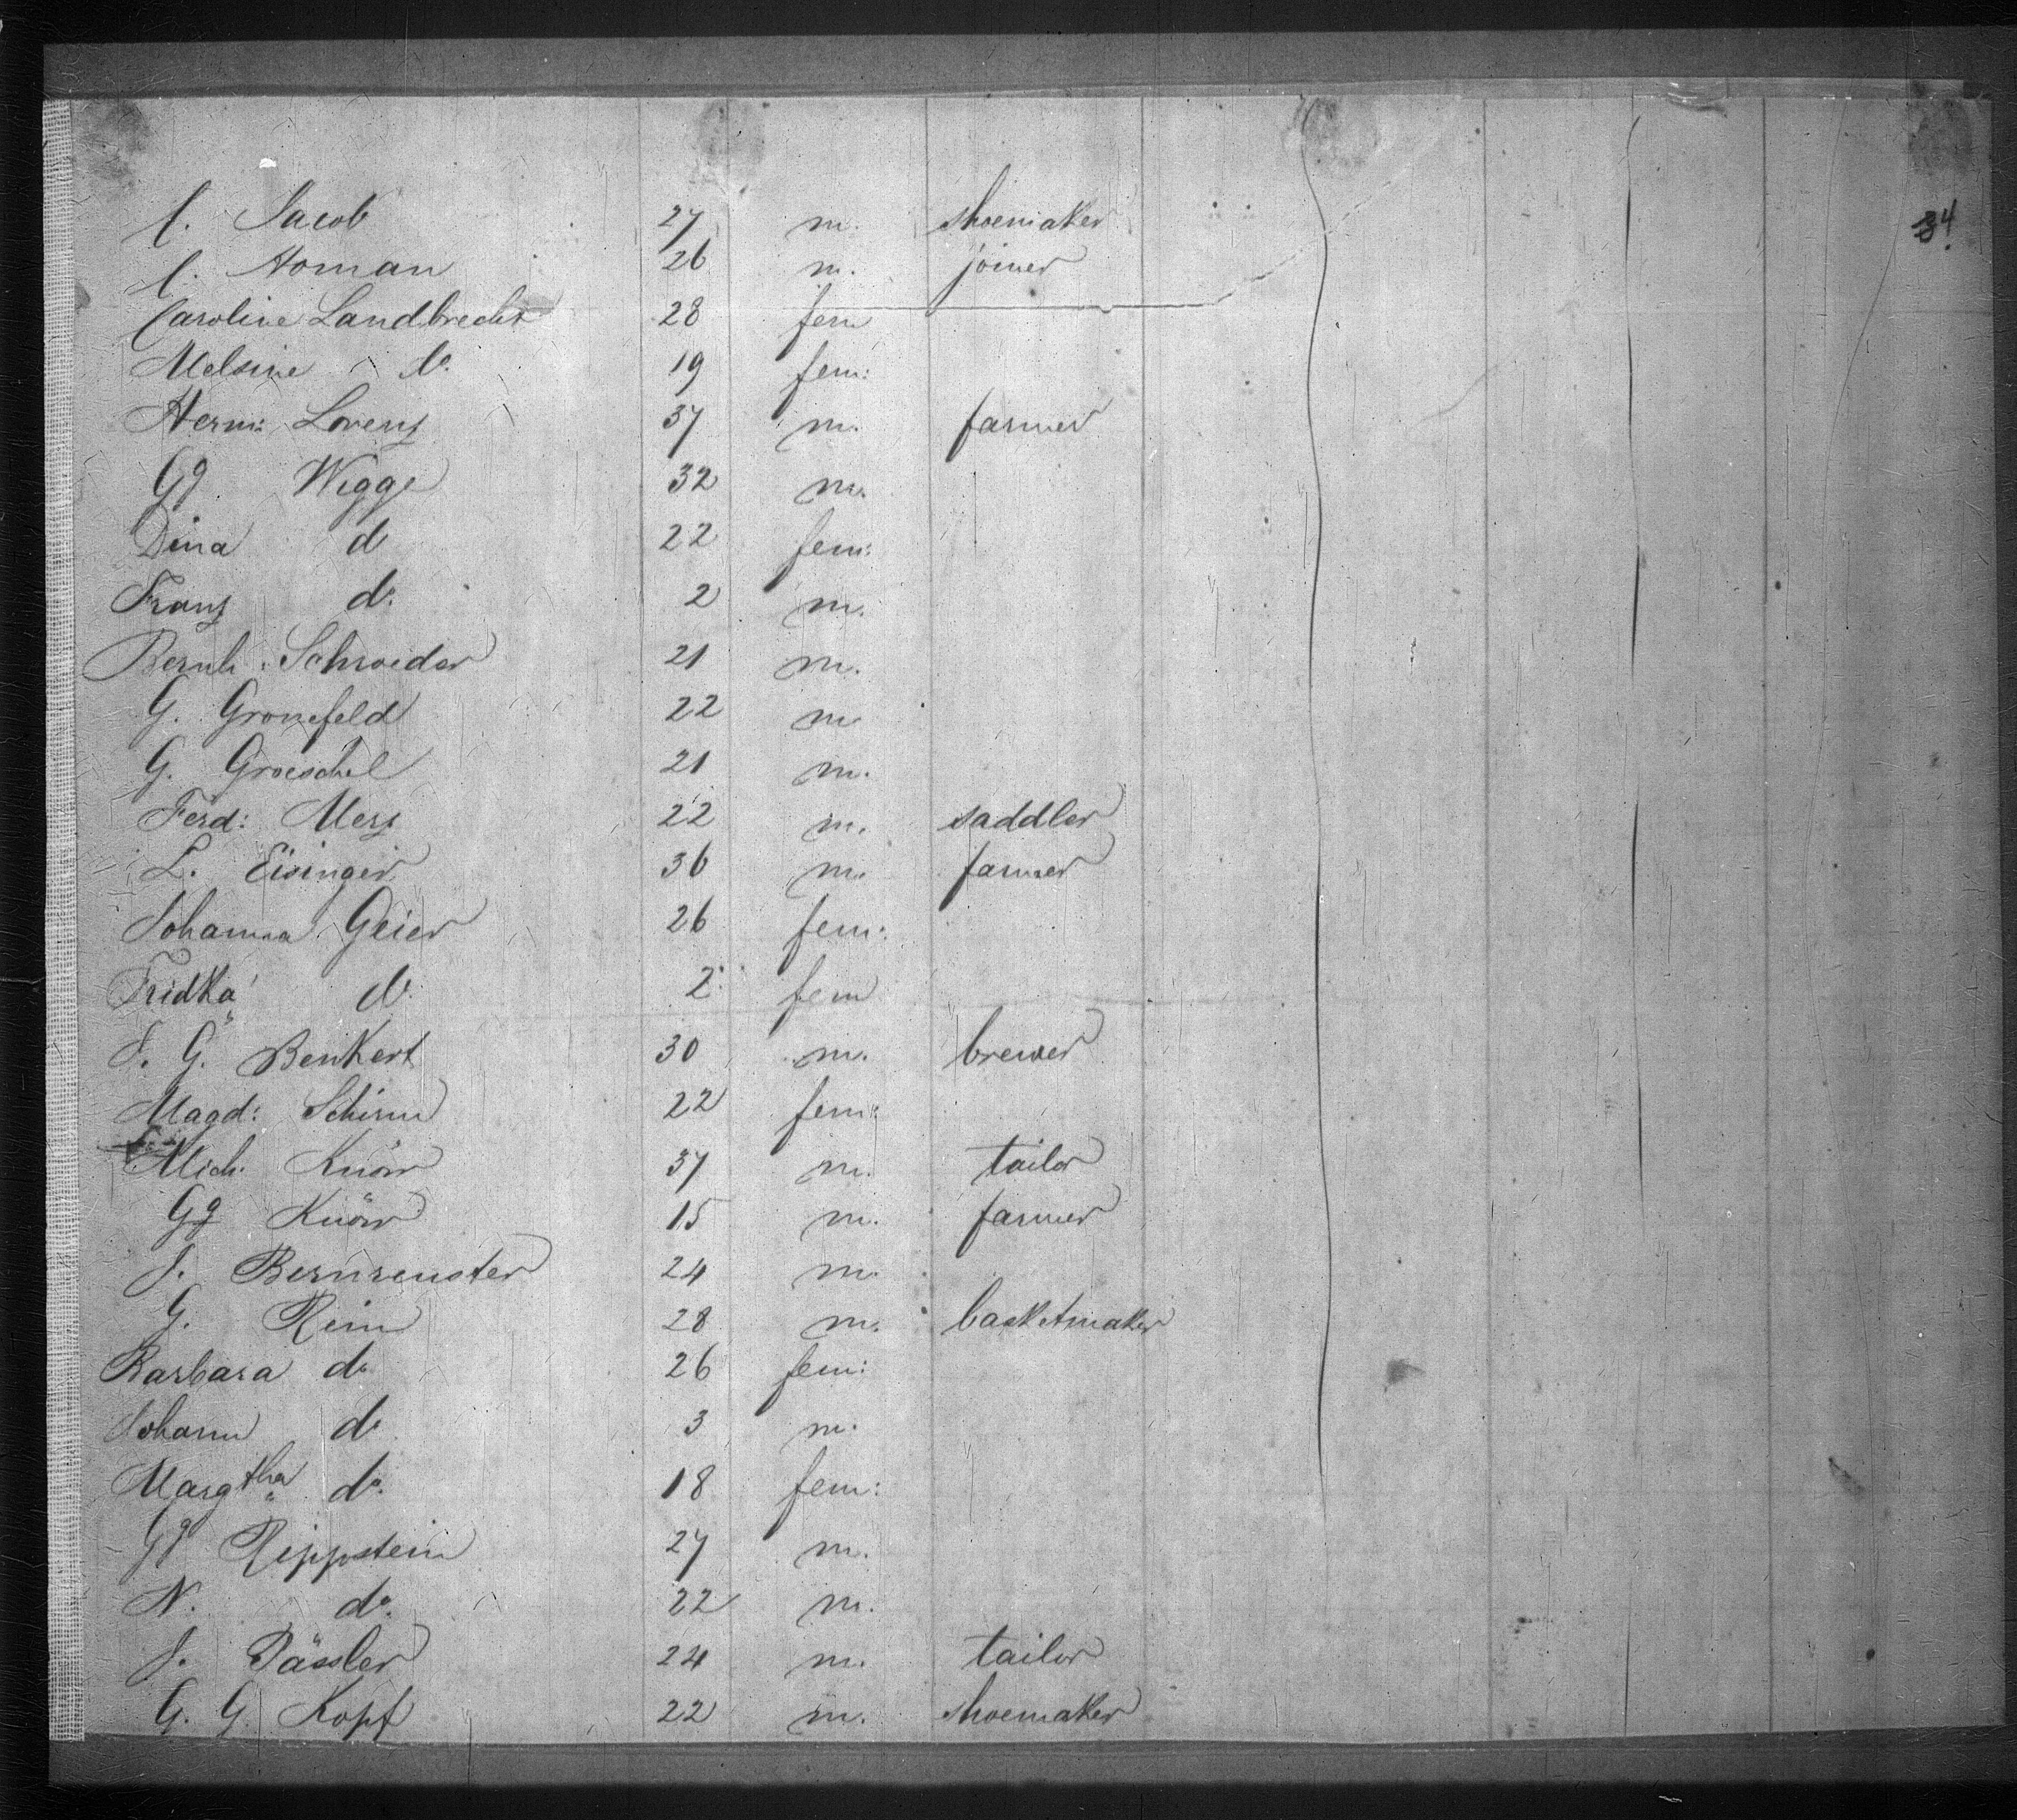 C. Jacob 27 m. shoemaker
34
C. Homan 26 m. joiner
Caroline Landbrecht 28 fem
Melsine do. 19 fem:
Herm: Lorenz 37 m. farmer
Gg Wigge 32 m.
Dina do 22 fem:
Franz do. 2 m.
Bernh: Schroider 21 m.
G. Gronefeld 22 m
G. Groeschel 21 m.
Ferd: Merz 22 m. saddler
L. Eisinger 36 m. farmer
Johanna Geier 26 fem:
Fridka do. 2 fem
J. G. Benkert 30 m. brewer
Magd: Schirm 22 fem:
Mich: Knörr 37 m. tailor
Gg Knörr 15 m. farmer
J. Bernreuster 24 m.
G. Reim 28 m. basketmaker
Barbara do 26 fem:
Johann do 3 m.
Margtha do. 18 fem:
Gg Rippstein 27 m.
N. do. 22 m.
J. Pässler 24 m. tailor
G. G. Kopf 22 m. shoemaker